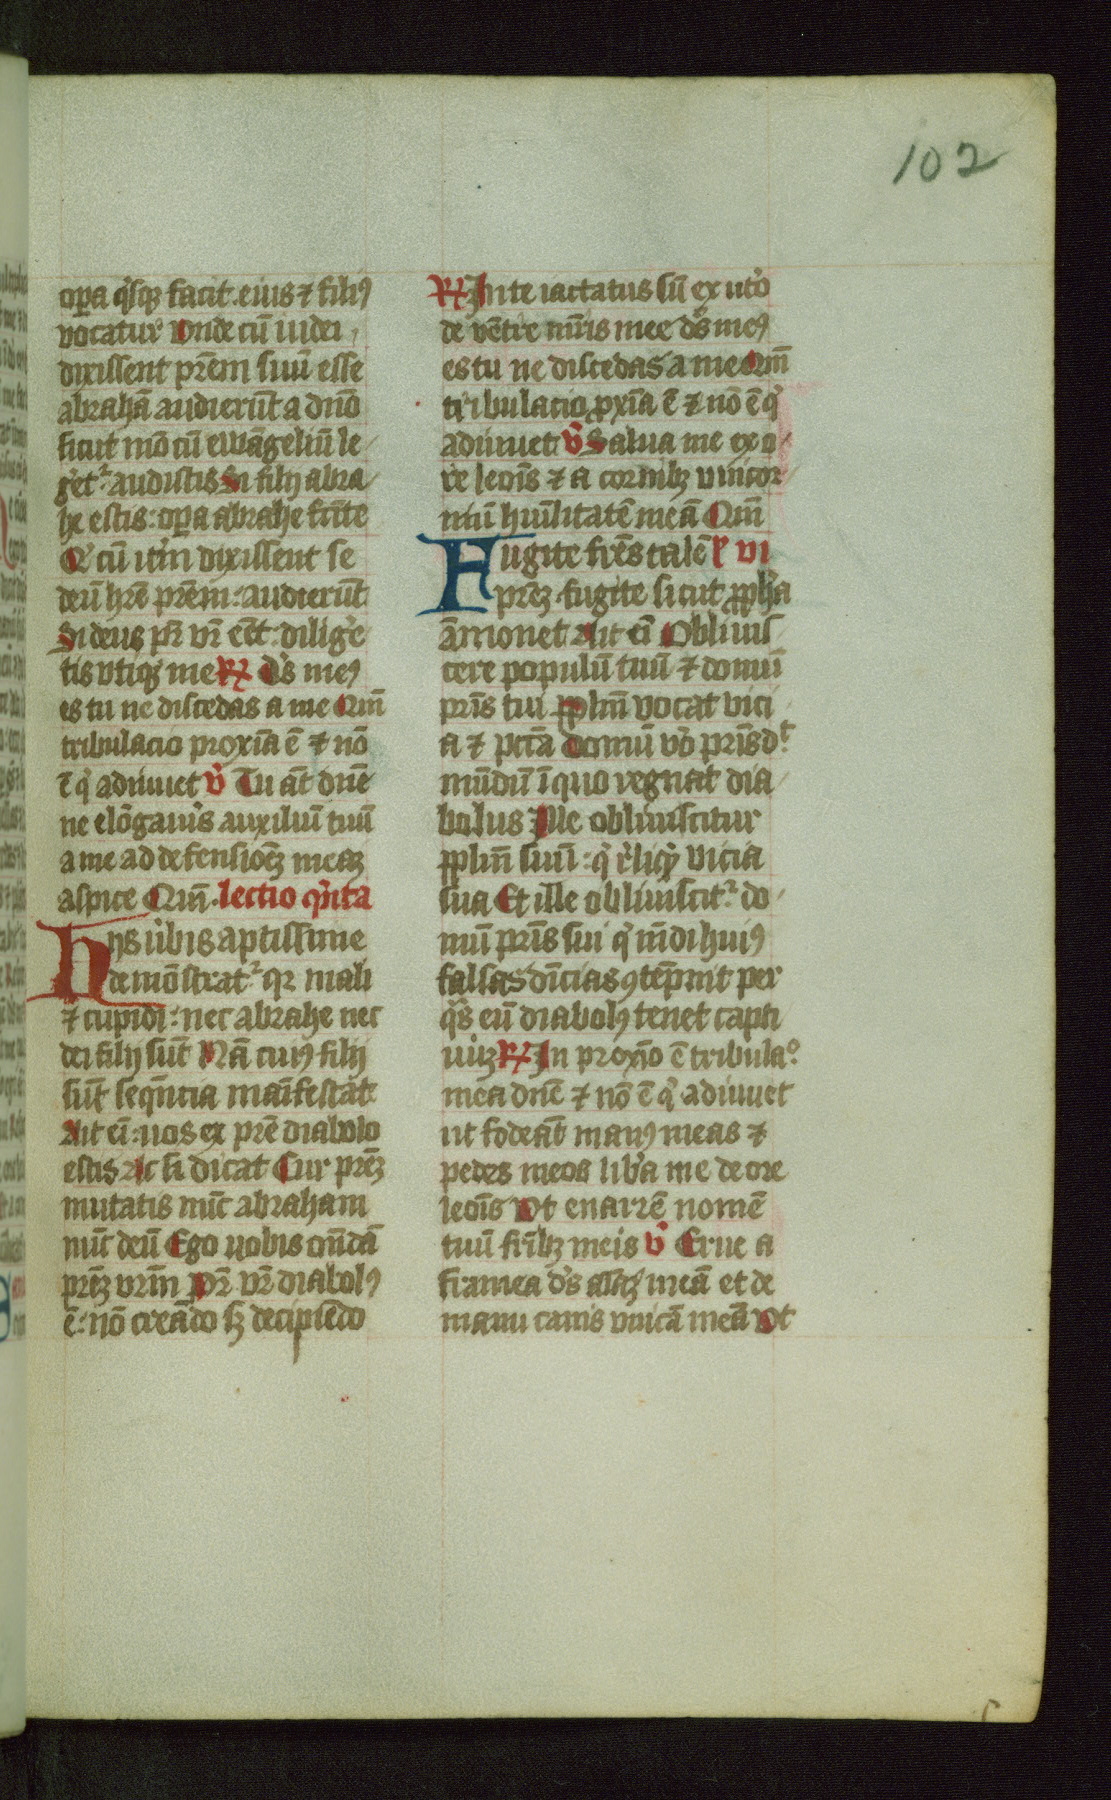 102
oꝑa qͥsqꝫ facit. eius ⁊ filiꝰ
vocatur Vnde cū iudei
dixissent prēm suū esse
abrahā audierūt a dn̄o
sicut mō cū ewāgeliū le
geret᷑ audistis Si filij abra
he estis: oꝑa abrahe fācite
Et cū itm̄ dixissent se
deū hr̄e prēm: audierūt
Si deus pr̄ vr̄ eēt: dilige
tis vtiqꝫ me ℟ Ds̄ meꝰ
es tu ne discedas a me Qm̄
tribulacio proxīa ē ⁊ nō
ē qͥ adiuuet ℣ Tu āt dn̄e
ne elōgaueris auxiliū tuū
a me ad defensiōeꝫ meaꝫ
aspice Qm̄. lectio qͥnta
Hijs v̉bis aptissime
demōstrat᷑ qꝛ mali
⁊ cupidi: nec abrahe nec
dei filij sūt Nā cuiꝰ filij
sūt seqn̄cia manīfestāt
Ait em̄: uos ex prē diabolo
estis Ac si dicat Cur prēꝫ
mutatis nūc abraham
nūc deū Ego uobis ondā
prēꝫ vrm̄ Pr̄ vr̄ diabolꝰ
ē: nō creādo sꝫ decipiēdo
℟ In te iactatus sū ex ut̉o
de vētre mr̄is mee ds̄ meꝰ
es tu ne discedas a me Qm̄
tribulacio ꝓxīa ē ⁊ nō ē qͥ
adiuuet ℣ Salua me ex o
re leoīs ⁊ a cornibꝫ vnicor
niū huīlitatē meā Qm̄
Fugite frēs talē ł vi
prēꝫ. fugite sicut ꝓpha
āmonet Ait em̄ Obliuis
cere populū tuū ⁊ domū
pr̄is tui Pplm̄ vocat vici
a ⁊ pctā Domū v̉o pr̄is dt
mūdū ī quo regnat dia
bolus Ille obliuiscitur
pplm̄ suū: qͥ r̉liqͥt vicia
sua Et ille obliuiscit᷑ do
mū pr̄is sui qͥ mūdi huiꝰ
falsas dīuicias ꝯtēpnit per
qͣs eū diabolꝰ tenet capti
uūꝫ ℟ In proxīo ē tribulaº
mea dn̄e ⁊ nō ē qͥ adiuuet
ut fodeāt manꝰ meas ⁊
pedes meos lib̉a me de ore
leoīs Vt enarrē nomē
tuū frībꝫ meis ℣ Erue a
framea ds̄ aīaꝫ meā et de
manu canis vnicā meā Vt